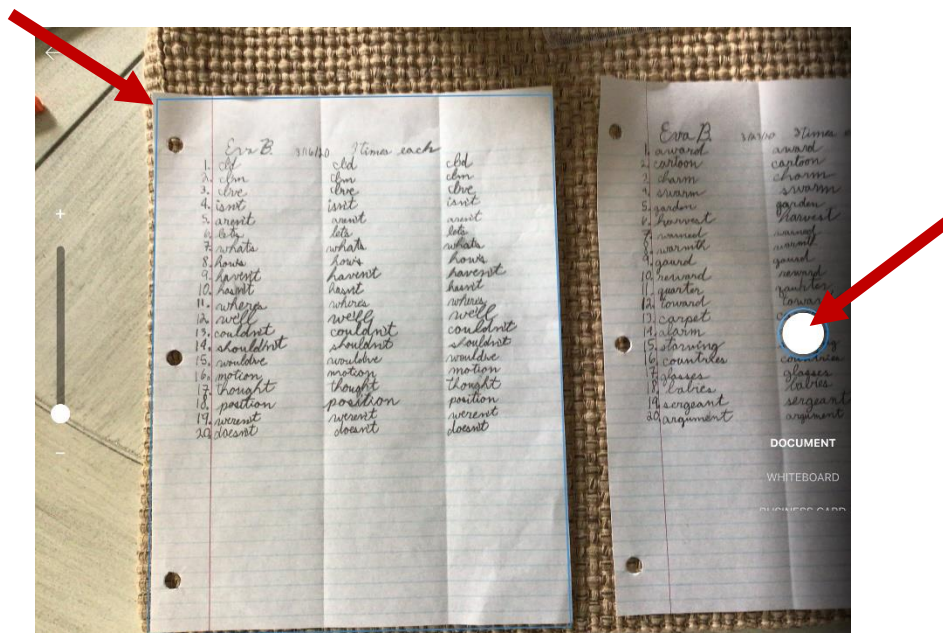 Eva B. 3/16/20 3 times each
1. I'd I'd I'd
2. I'm I'm I'm
3. I've I've I've
4. isn't isn't isn't
5. aren't aren't aren't
6. let's let's let's
7. what's what's what's
8. how's how's how's
9. haven't haven't haven't
10. hasn't hasn't hasn't
11. where's where's where's
12. we'll we'll we'll
13. couldn't couldn't couldn't
14. shouldn't shouldn't shouldn't
15. would've would've would've
16. motion motion motion
17. thought thought thought
18. position position position
19. weren't weren't weren't
20. doesn't doesn't doesn't
Eva B. 3 times
1. award award
2. cartoon cartoon
3. charm charm
4. swarm swarm
5. garden garden
6. harvest harvest
7. warned warned
8. warmth warmth
9. gaurd gaurd
10. reward reward
11. quarter quarter
12. toward towar
13. carpet
14. alarm
15. starving
16. countries countries
17. glasses glasses
18. babies babies
19. sergeant sergeant
20. argument argument
DOCUMENT
WHITEBOARD
BUSINESS CARD